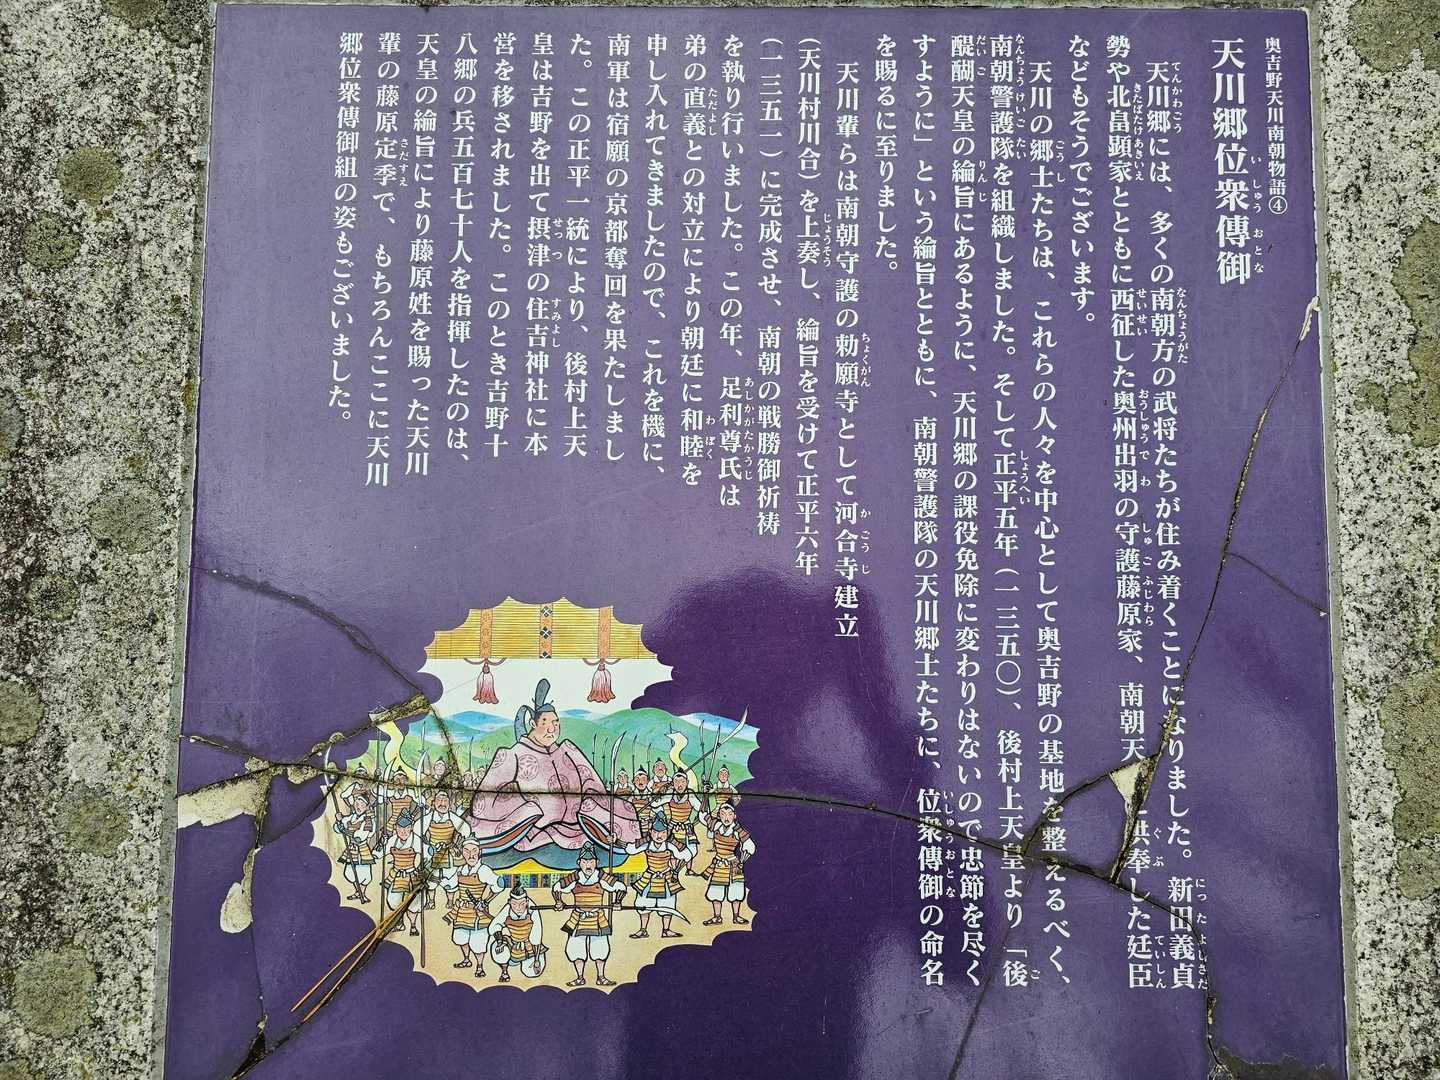 奥吉野天川南朝物語④
天川郷位衆傳御
天川郷には、多くの南朝方の武将たちが住み着くことになりました。新田義貞
勢や北畠顕家とともに西征した奥州出羽の守護藤原家、南朝天 供奉した廷臣
などもそうでございます。
天川の郷士たちは、これらの人々を中心として奥吉野の基地を整えるべく、
南朝警護隊を組織しました。そして正平五年(一三五〇)、後村上天皇より「後
醍醐天皇の綸旨にあるように、天川郷の課役免除に変わりはないので忠節を尽く
すように」という綸旨とともに、南朝警護隊の天川郷士たちに、位衆傳御の命名
を賜るに至りました。
天川輩らは南朝守護の勅願寺として河合寺建立
(天川村川合)を上奏し、綸旨を受けて正平六年
(一三五一)に完成させ、南朝の戦勝御祈祷
を執り行いました。この年、足利尊氏は
弟の直義との対立により朝廷に和睦を
申し入れてきましたので、これを機に、
南軍は宿願の京都奪回を果たしまし
た。この正平一統により、後村上天
皇は吉野を出て摂津の住吉神社に本
営を移されました。このとき吉野十
八郷の兵五百七十人を指揮したのは、
天皇の綸旨により藤原姓を賜った天川
輩の藤原定季で、もちろんここに天川
郷位衆傳御組の姿もございました。